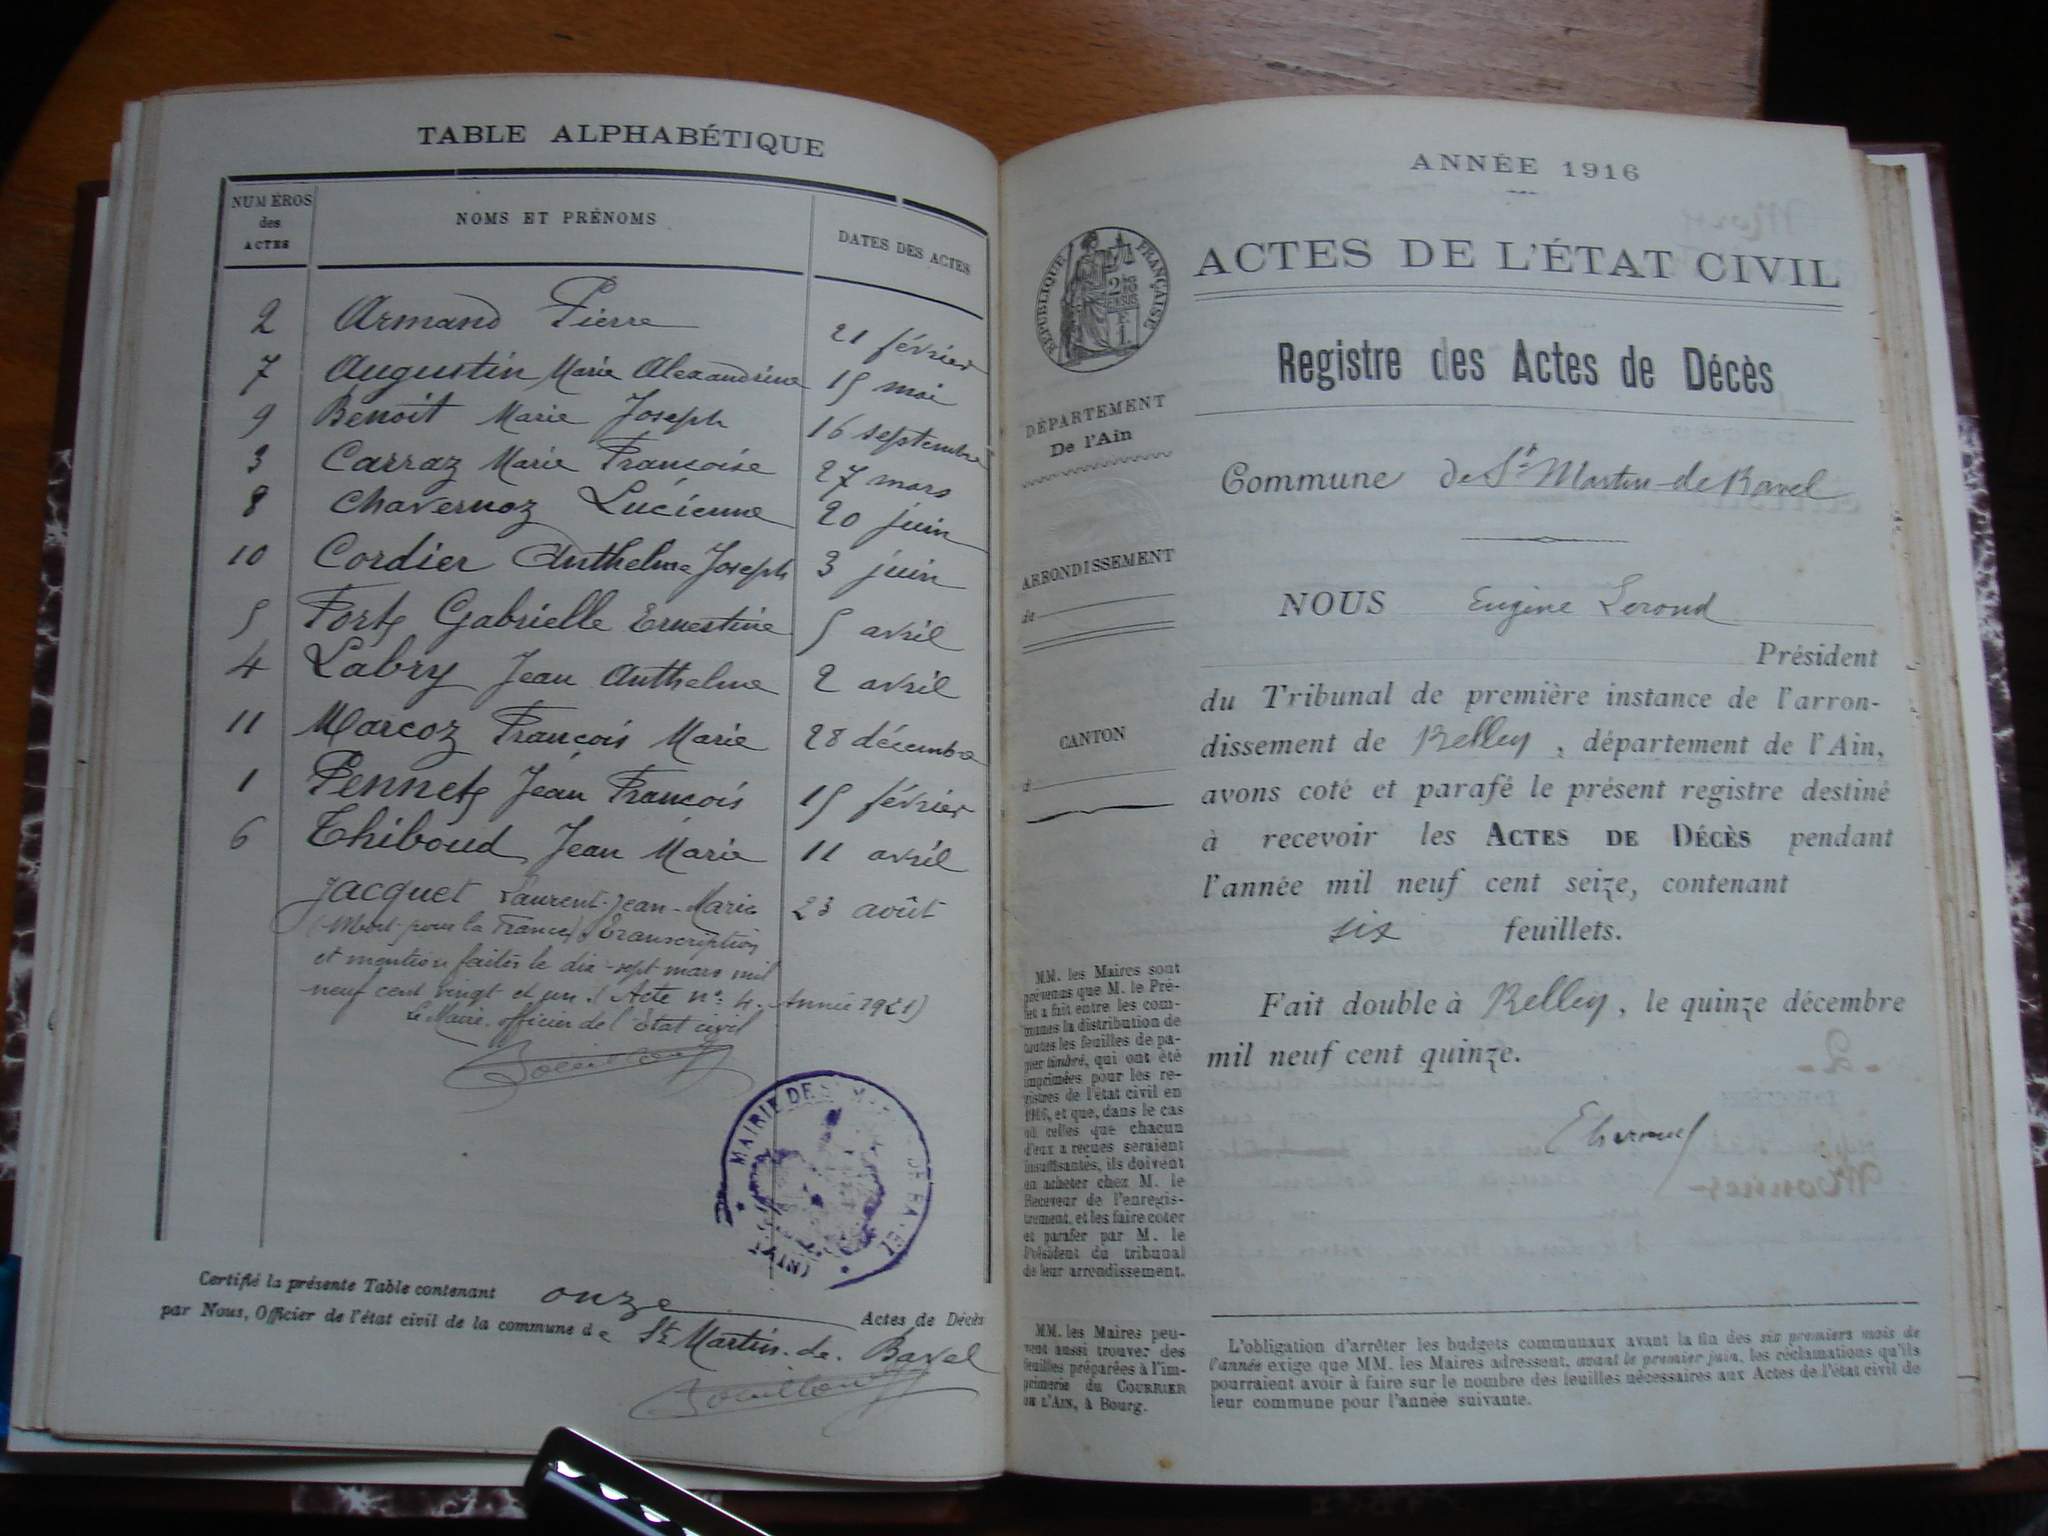 TABLE ALPHABÉTIQUE
NUMÉROS des ACTES NOMS ET PRÉNOMS DATES DES ACTES
2 Armand Pierre 21 février
7 Augustin Marie Alexandrine 15 mai
9 Benoit Marie Joseph 16 septembre
3 Carraz Marie Françoise 27 mars
8 Chavernoz Lucienne 20 juin
10 Cordier Anthelme Joseph 3 juin
5 Fort Gabrielle Ernestine 5 avril
4 Labry Jean Anthelme 2 avril
11 Marcoz François Marie 28 décembre
1 Pennet Jean François 15 février
6 Thiboud Jean Marie 11 avril
Jacquet Laurent-Jean-Marie 23 août
(Mort pour la France) Transcription
et mention faites le dix-sept mars mil
neuf cent vingt et un. (Acte n° 4. Année 1921)
Le Maire, officier de l'État civil
MAIRIE DE
(AIN)
Certifié la présente Table contenant onze Actes de Décès
par Nous, Officier de l'état civil de la commune de St Martin-de-Bavel
ANNÉE 1916
RÉPUBLIQUE FRANÇAISE
ACTES DE L'ÉTAT CIVIL
Registre des Actes de Décès
DÉPARTEMENT
De l'Ain
Commune de St Martin-de-Bavel
ARRONDISSEMENT
de
NOUS Eugène Leroud
Président
du Tribunal de première instance de l'arron-
dissement de Belley, département de l'Ain,
CANTON
d
avons coté et parafé le présent registre destiné
à recevoir les ACTES DE DÉCÈS pendant
l'année mil neuf cent seize, contenant
six feuillets.
Fait double à Belley, le quinze décembre
mil neuf cent quinze.
MM. les Maires sont
prévenus que M. le Pré-
fet a fait entre les com-
munes la distribution de
toutes les feuilles de pa-
pier timbré, qui ont été
imprimées pour les re-
gistres de l'état civil en
1916, et que, dans le cas
où celles que chacun
d'eux a reçues seraient
insuffisantes, ils doivent
en acheter chez M. le
Receveur de l'enregis-
trement, et les faire coter
et parafer par M. le
Président du tribunal
de leur arrondissement.
MM. les Maires peu-
vent aussi trouver des
feuilles préparées à l'im-
primerie du COURRIER
DE L'AIN, à Bourg.
L'obligation d'arrêter les budgets communaux avant la fin des six premiers mois de
l'année exige que MM. les Maires adressent, avant le premier juin, les réclamations qu'ils
pourraient avoir à faire sur le nombre des feuilles nécessaires aux Actes de l'état civil de
leur commune pour l'année suivante.